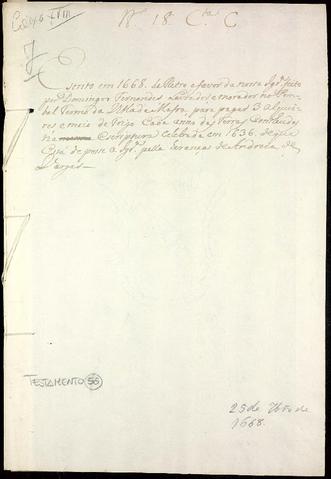 Nº 18 Cta C
Esento em 1668. de Retro e favor da nossa Igrª feito
por Domingos Fernandes Lavrador e morador no
bal Termo da Vª de Mafra para pagar 3 alquei
res e meio de Trigo Cada anno das Terras Contheudas
na Escriptura Celebrada em 1636. de que
Está de posse a Igrª pella herança de Andreza de
Vargas
TESTAMENTO 56
25 de 7bro de
1668.